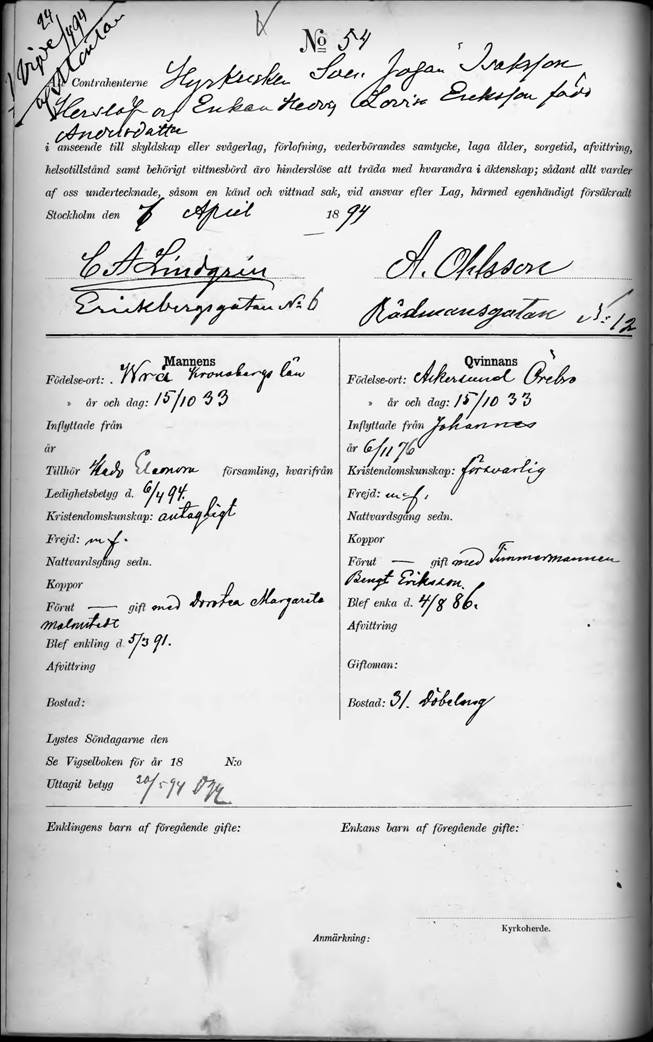 24/494
No 54
Contrahenterne Hyrkusken Sven Johan Isaksson
och Enkan Hedvig Lovisa Eriksson född
Andersdotter
i anseende till skyldskap eller svågerlag, förlofning, vederbörandes samtycke, laga ålder, sorgetid, afvittring,
helsotillstånd samt behörigt vittnesbörd äro hinderslöse att träda med hvarandra i äktenskap; sådant allt varder
af oss undertecknade, såsom en känd och vittnad sak, vid ansvar efter Lag, härmed egenhändigt försäkradt
Stockholm den 7 April 1894
C A Lindgrén A. Ohlsson
Ericksbergsgatan No 6 Rådmansgatan No 12
Mannens
Födelse-ort: Wrå Kronobergs län
» år och dag: 15/10 33
Inflyttade från
år
Tillhör Hedv Eleonora församling, hvarifrån
Ledighetsbetyg d. 6/4 94.
Kristendomskunskap: antagligt
Frejd: m f.
Nattvardsgång sedn.
Koppor
Förut — gift med Dorotea Margareta
Malmstedt
Blef enkling d. 5/3 91.
Afvittring
Bostad:
Qvinnans
Födelse-ort: Askersund Örebro
» år och dag: 15/10 33
Inflyttade från Johannes
år 6/11 76
Kristendomskunskap: försvarlig
Frejd: m f.
Nattvardsgång sedn.
Koppor
Förut — gift med Timmermannen
Bengt Eriksson.
Blef enka d. 4/8 86.
Afvittring
Giftoman:
Bostad: 31. Döbelnsg
Lystes Söndagarne den
Se Vigselboken för år 18 N:o
Uttagit betyg 20/5 94
Enklingens barn af föregående gifte: Enkans barn af föregående gifte:
Kyrkoherde.
Anmärkning: